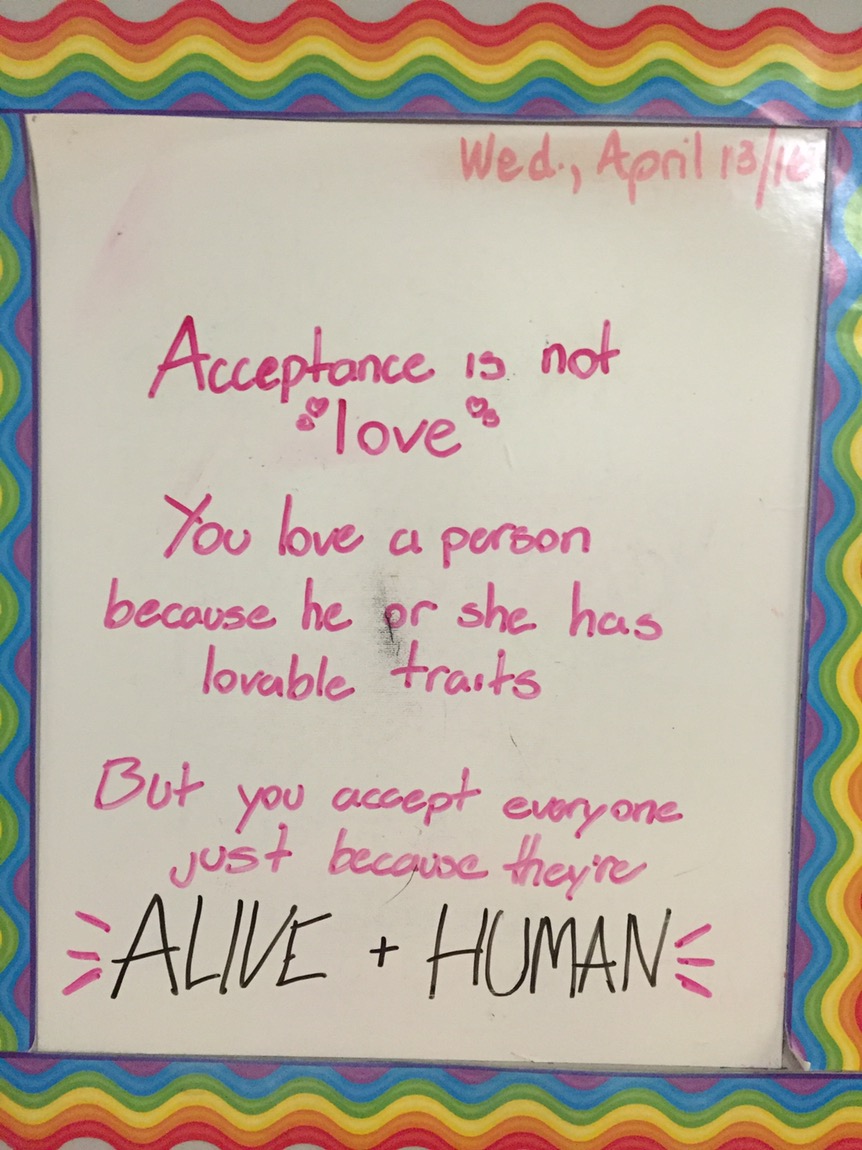 Wed., April 13/16
Acceptance is not
love
You love a person
because he or she has
lovable traits
But you accept everyone
just because they're
ALIVE + HUMAN